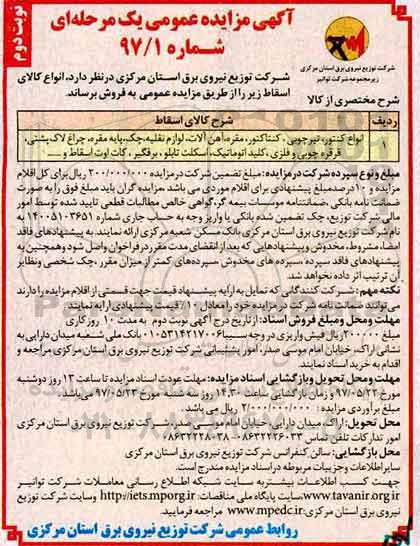 نوبت دوم
آگهی مزایده عمومی یک مرحله‌ای
شماره ۹۷/۱
شرکت توزیع نیروی برق استان مرکزی
زیر مجموعه شرکت توانیر
شرکت توزیع نیروی برق استان مرکزی درنظر دارد، انواع کالای
اسقاط زیر را از طریق مزایده عمومی به فروش برساند.
شرح مختصری از کالا
ردیف
شرح کالای اسقاط
۱
انواع کنتور، تیرچوبی، کنتاکتور، مقره، آهن آلات، لوازم نقلیه، چک، پایه مقره، چراغ لاک پشتی،
قرقره چوبی و فلزی، کلید اتوماتیک، اسکلت تابلو، برقگیر، کات اوت اسقاط و ....
مبلغ و نوع سپرده شرکت در مزایده: مبلغ تضمین شرکت در مزایده ۳۰۰/۰۰۰/۰۰۰ ریال برای کل اقلام
مزایده و ۱۰ درصد مبلغ پیشنهادی برای اقلام موردی می باشد، مزایده گران باید مبلغ فوق را به صورت
ضمانت نامه بانکی، ضمانتنامه موسسات بیمه گر، گواهی خالص مطالبات قطعی تایید شده توسط امور
مالی شرکت توزیع، چک تضمین شده بانکی یا واریز وجه به حساب جاری شماره ۱۴۰۰۵۱۰۳۶۵۱ به
نام شرکت توزیع نیروی برق استان مرکزی بانک مسکن شعبه مرکزی ارائه نمایند. به پیشنهادهای فاقد
امضا، مشروط، مخدوش و پیشنهادهایی که بعد از انقضای مدت مقرر در فراخوان واصل شود وهمچنین به
پیشنهادهای فاقد سپرده، سپرده های مخدوش، سپرده‌های کمتر از میزان مقرر، چک شخصی ونظایر
آن ترتیب اثر داده نخواهد شد.
نکته مهم: شرکت کنندگانی که تمایل به ارایه پیشنهاد قیمت جهت قسمتی از اقلام مزایده را دارند
می‌توانند ضمانت نامه شرکت در مزایده خود را معادل ۱۰٪ قیمت پیشنهادی ارایه نمایند.
مهلت ومحل ومبلغ فروش اسناد: از تاریخ درج آگهی نوبت دوم به مدت ۱۰ روز کاری
مبلغ ۲۰۰۰۰۰ ریال فیش واریزی در وجه سیبا ۰۱۰۵۳۱۴۲۱۷۰۰۶ بانک ملی شعبه میدان دارایی به
نشانی اراک، خیابان امام موسی صدر، امور پشتیبانی شرکت توزیع نیروی برق استان مرکزی مراجعه و
اقدام به خرید اسناد نمایند.
مهلت ومحل تحویل وبازگشایی اسناد مزایده: مهلت عودت اسناد مزایده تا ساعت ۱۳ روز دوشنبه
مورخ ۹۷/۰۵/۲۲ و زمان بازگشایی ساعت ۱۴:۳۰ روز سه شنبه مورخ ۹۷/۰۵/۲۳ می‌باشد.
مبلغ برآوردی مزایده: ۲/۰۰۰/۰۰۰/۰۰۰ ریال می باشد.
محل تحویل: اراک، میدان دارایی، خیابان امام موسی صدر، شرکت توزیع نیروی برق استان مرکزی
امور تدارکات تلفن تماس ۰۸۶۳۲۲۲۶۰۳۳-۰۸۶۳۲۲۲۸۰۳۸
محل بازگشایی: سالن کنفرانس شرکت توزیع نیروی برق استان مرکزی
سایر اطلاعات و جزییات مربوطه در اسناد مزایده مندرج است.
جهت کسب اطلاعات بیشتر به سایت شبکه اطلاع رسانی معاملات شرکت توانیر
www.tavanir.org.ir، سایت پایگاه ملی مناقصات: http://iets.mporg.ir وسایت شرکت توزیع
نیروی برق استان مرکزی: www.mpedc.ir مراجعه فرمایید.
روابط عمومی شرکت توزیع نیروی برق استان مرکزی